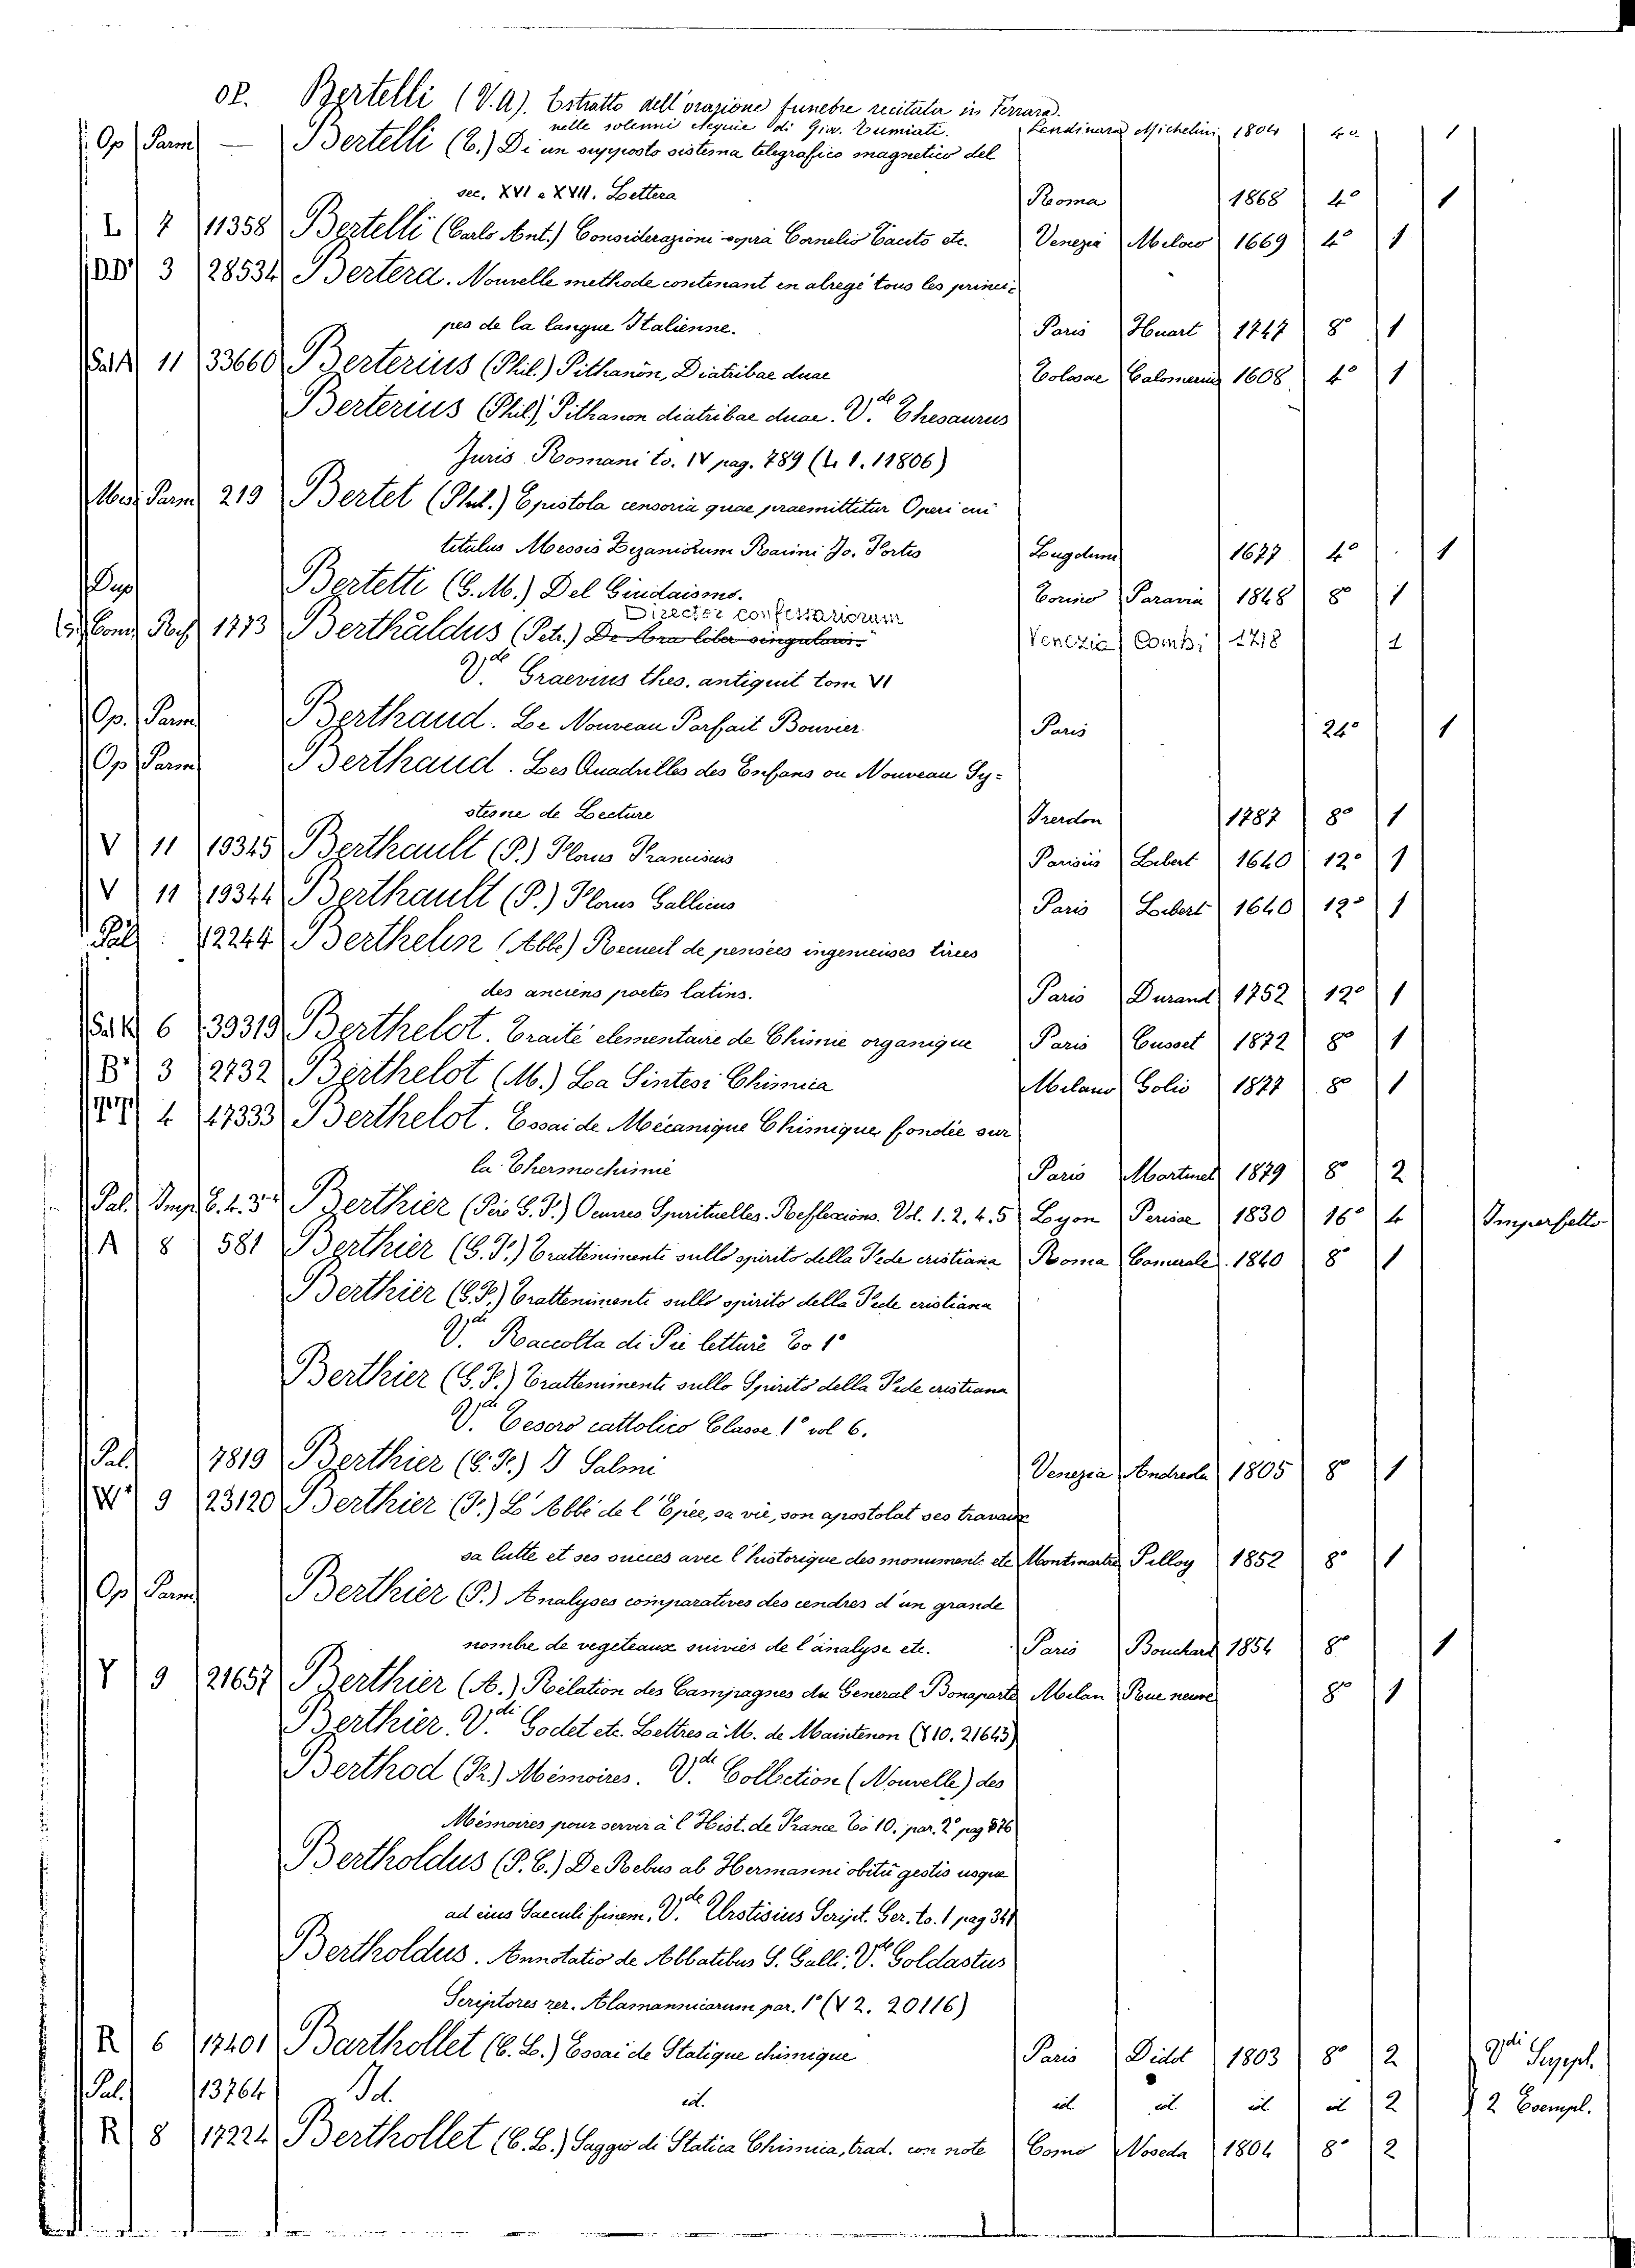 op. Bertelli (V. A). Estratto dell'orazione funebre recitata in Ferrara
nelle solenni esequie di Giov. Zumiati. Lendinara Michelini 1804 4° 1
Op Parm — Bertelli (T.) Di un supposto sistema telegrafico magnetico del
sec. XVI e XVII. Lettera Roma 1868 4° 1
L 7 11358 Bertelli (Carlo Ant.) Considerazioni sopra Cornelio Tacito etc. Venezia Miloco 1669 4° 1
DD 3 28534 Bertera. Nouvelle methode contenant en abregé tous les princi-
pes de la langue Italienne. Paris Huart 1747 8° 1
Sal A 11 33660 Berterius (Phil.) Pithanòn, Diatribae duae Tolosae Calomerius 1608 4° 1
Berterius (Phil.) Pithanon diatribae duae. V.de Thesaurus
Juris Romani to. IV pag. 789 (L 1. 11806)
Med. Parm 219 Bertet (Phil.) Epistola censoria quae praemittitur Operi cui
titulus Messis Dezaniorum Ravini Jo. Portes Lugduni 1677 4° 1
Dup Bertetti (G. M.) Del Giudaismo. Torino Paravia 1848 8° 1
Director confessariorum
Com Rosf 1773 Berthaldus (Petr.) De Ara liber singularis. Venezia Combi 1718 1
V.de Graevius thes. antiquit tom VI
Op. Parm Berthaud. Le Nouveau Parfait Bouvier Paris 24° 1
Op Parm Berthaud. Les Quadrilles des Enfans ou Nouveau Sy-
steme de Lecture Iverdon 1787 8° 1
V 11 19345 Berthault (P.) Florus Franciscus Parisiis Libert 1640 12° 1
V 11 19344 Berthault (P.) Florus Gallicus Paris Libert 1640 12° 1
Pal 12244 Berthelin (Abbé) Recueil de pensées ingenieuses tirees
des anciens poetes latins. Paris Durand 1752 12° 1
Sal A 6 39319 Berthelot. Traité elementaire de Chimie organique Paris Cusset 1872 8° 1
B 3 2732 Berthelot (M.) La Sintesi Chimica Milano Golio 1877 8° 1
4 47333 Berthelot. Essai de Mécanique Chimique, fondée sur
la Thermochimie Paris Martinet 1879 8° 2
Pal. Imp. C. 4. 3 Berthier (Pere G. F.) Oeuvres Spirituelles. Reflexions. Vol. 1. 2. 4. 5 Lyon Perisse 1830 16° 4 Imperfetto
A 8 581 Berthier (G. F.) Trattenimenti sullo spirito della Fede cristiana Roma Camerale 1840 8° 1
Berthier (G. F.) Trattenimenti sullo spirito della Fede cristiana
V.di Raccolta di Pie letture To 1°
Berthier (G. F.) Trattenimenti sullo Spirito della Fede cristiana
V.di Tesoro cattolico Classe 1° vol 6.
Pal. 7819 Berthier (G. F.) I Salmi Venezia Andreola 1805 8° 1
W 9 23120 Berthier (F.) L'Abbé de l'Epée, sa vie, son apostolat ses travaux
sa lutte et ses succes avec l'historique des monuments etc Montmartre Pilloy 1852 8° 1
Op Parm Berthier (P.) Analyses comparatives des cendres d'un grande
nombre de vegeteaux suivies de l'analyse etc. Paris Bouchard 1854 8° 1
Y 9 21657 Berthier (A.) Relation des Campagnes du General Bonaparte Milan Rue neuve 8° 1
Berthier. V.di Godet etc. Lettres a M. de Maintenon (Y 10. 21643)
Berthod (P.) Mémoires. V.de Collection (Nouvelle) des
Mémoires pour servir à l'Hist. de France To 10. par. 2° pag 576
Bertholdus (P. C.) De Rebus ab Hermanni obitu gestis usque
ad eius Saeculi finem. V.de Urstisius Script. Ger. to. 1 pag 341
Bertholdus. Annotatio de Abbatibus S. Galli. V.de Goldastus
Scriptores rer. Alamannicarum par. 1° (V 2. 20116)
R 6 17401 Barthollet (C. L.) Essai de Statique chimique Paris Didot 1803 8° 2 V.di Suppl.
Pal. 13764 Id. id. id. id. id. id 2 2 Esempl.
R 8 17224 Berthollet (C. L.) Saggio di Statica Chimica, trad. con note Como Noseda 1804 8° 2